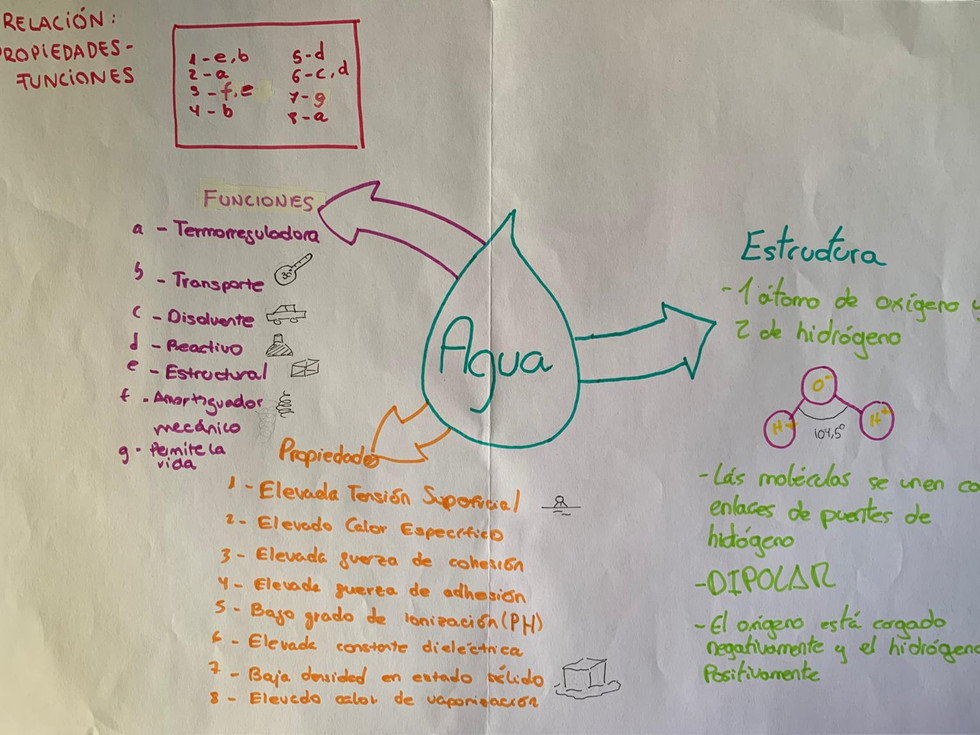 RELACIÓN:
PROPIEDADES-
FUNCIONES
1-e,b
2-a
3-f,e
4-b
5-d
6-c,d
7-g
8-a
FUNCIONES
a - Termorreguladora
b - Transporte
c - Disolvente
d - Reactivo
e - Estructural
f - Amortiguador
mecánico
g - Permite la
vida
Agua
Propiedades
1 - Elevada Tensión Superficial
2 - Elevado Calor Específico
3 - Elevada fuerza de cohesión
4 - Elevada fuerza de adhesión
5 - Bajo grado de ionización (PH)
6 - Elevada constante dieléctrica
7 - Baja densidad en estado sólido
8 - Elevado calor de vaporización
Estructura
- 1 átomo de oxígeno y
2 de hidrógeno
O-
H+ H+
104,5°
- Lás moléculas se unen co
enlaces de puentes de
hidógeno
- DIPOLAR
- El oxígeno está cargado
negativamente y el hidrógeno
Positivamente